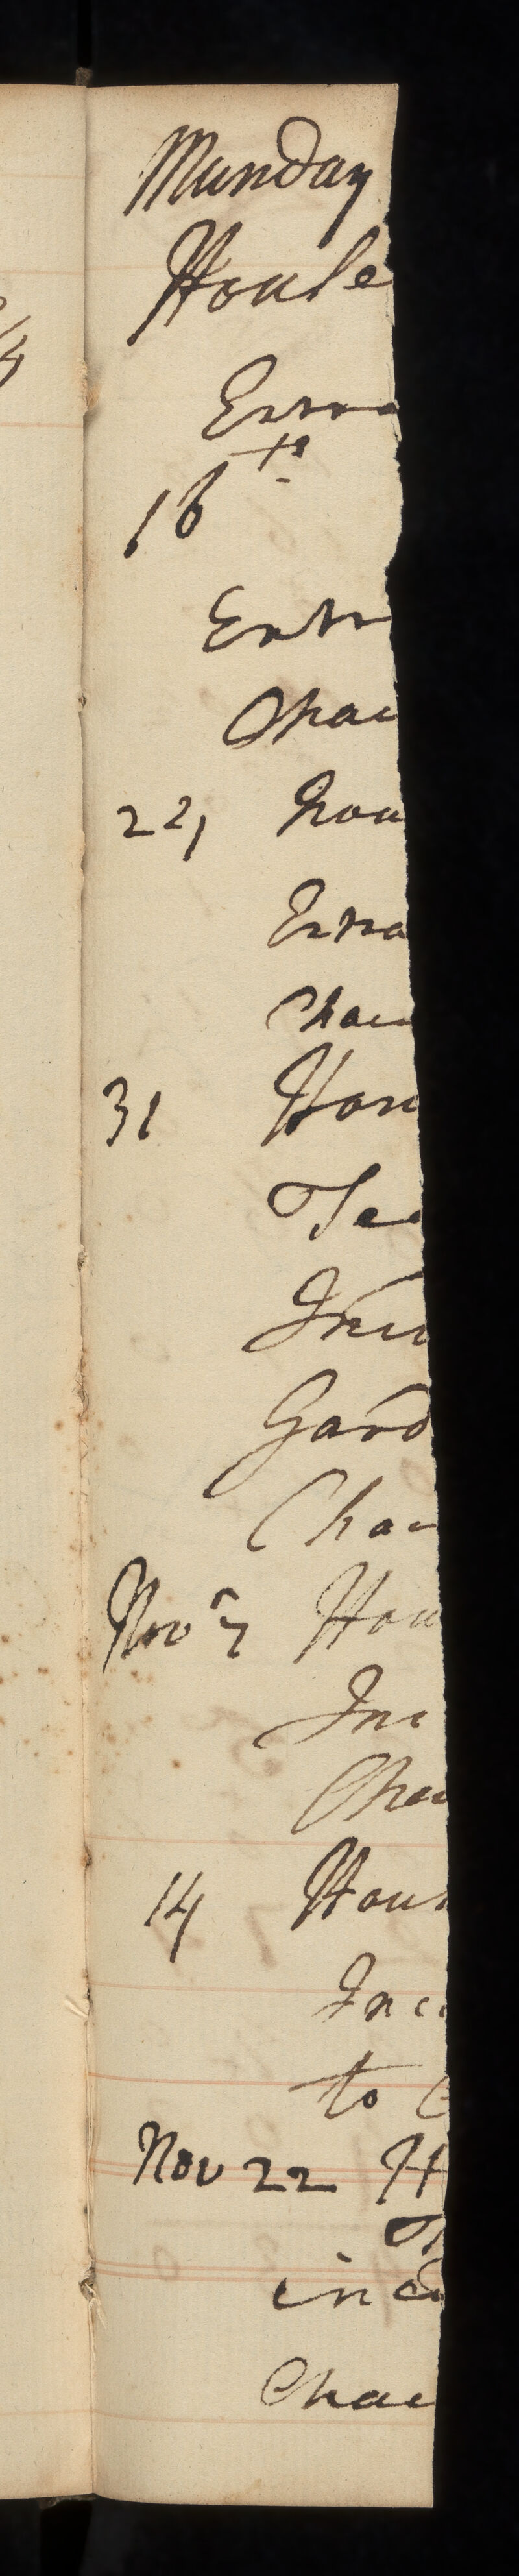 Munday
House
Extra
16th
Extr
Chai
22, hou
Extra
Chai
31 Hou
Tea
Inci
Gard
Chai
Nov 7 Hou
Inc
Chai
14 Hous
Inci
to C
Nov 22 H
T
inci
Chai